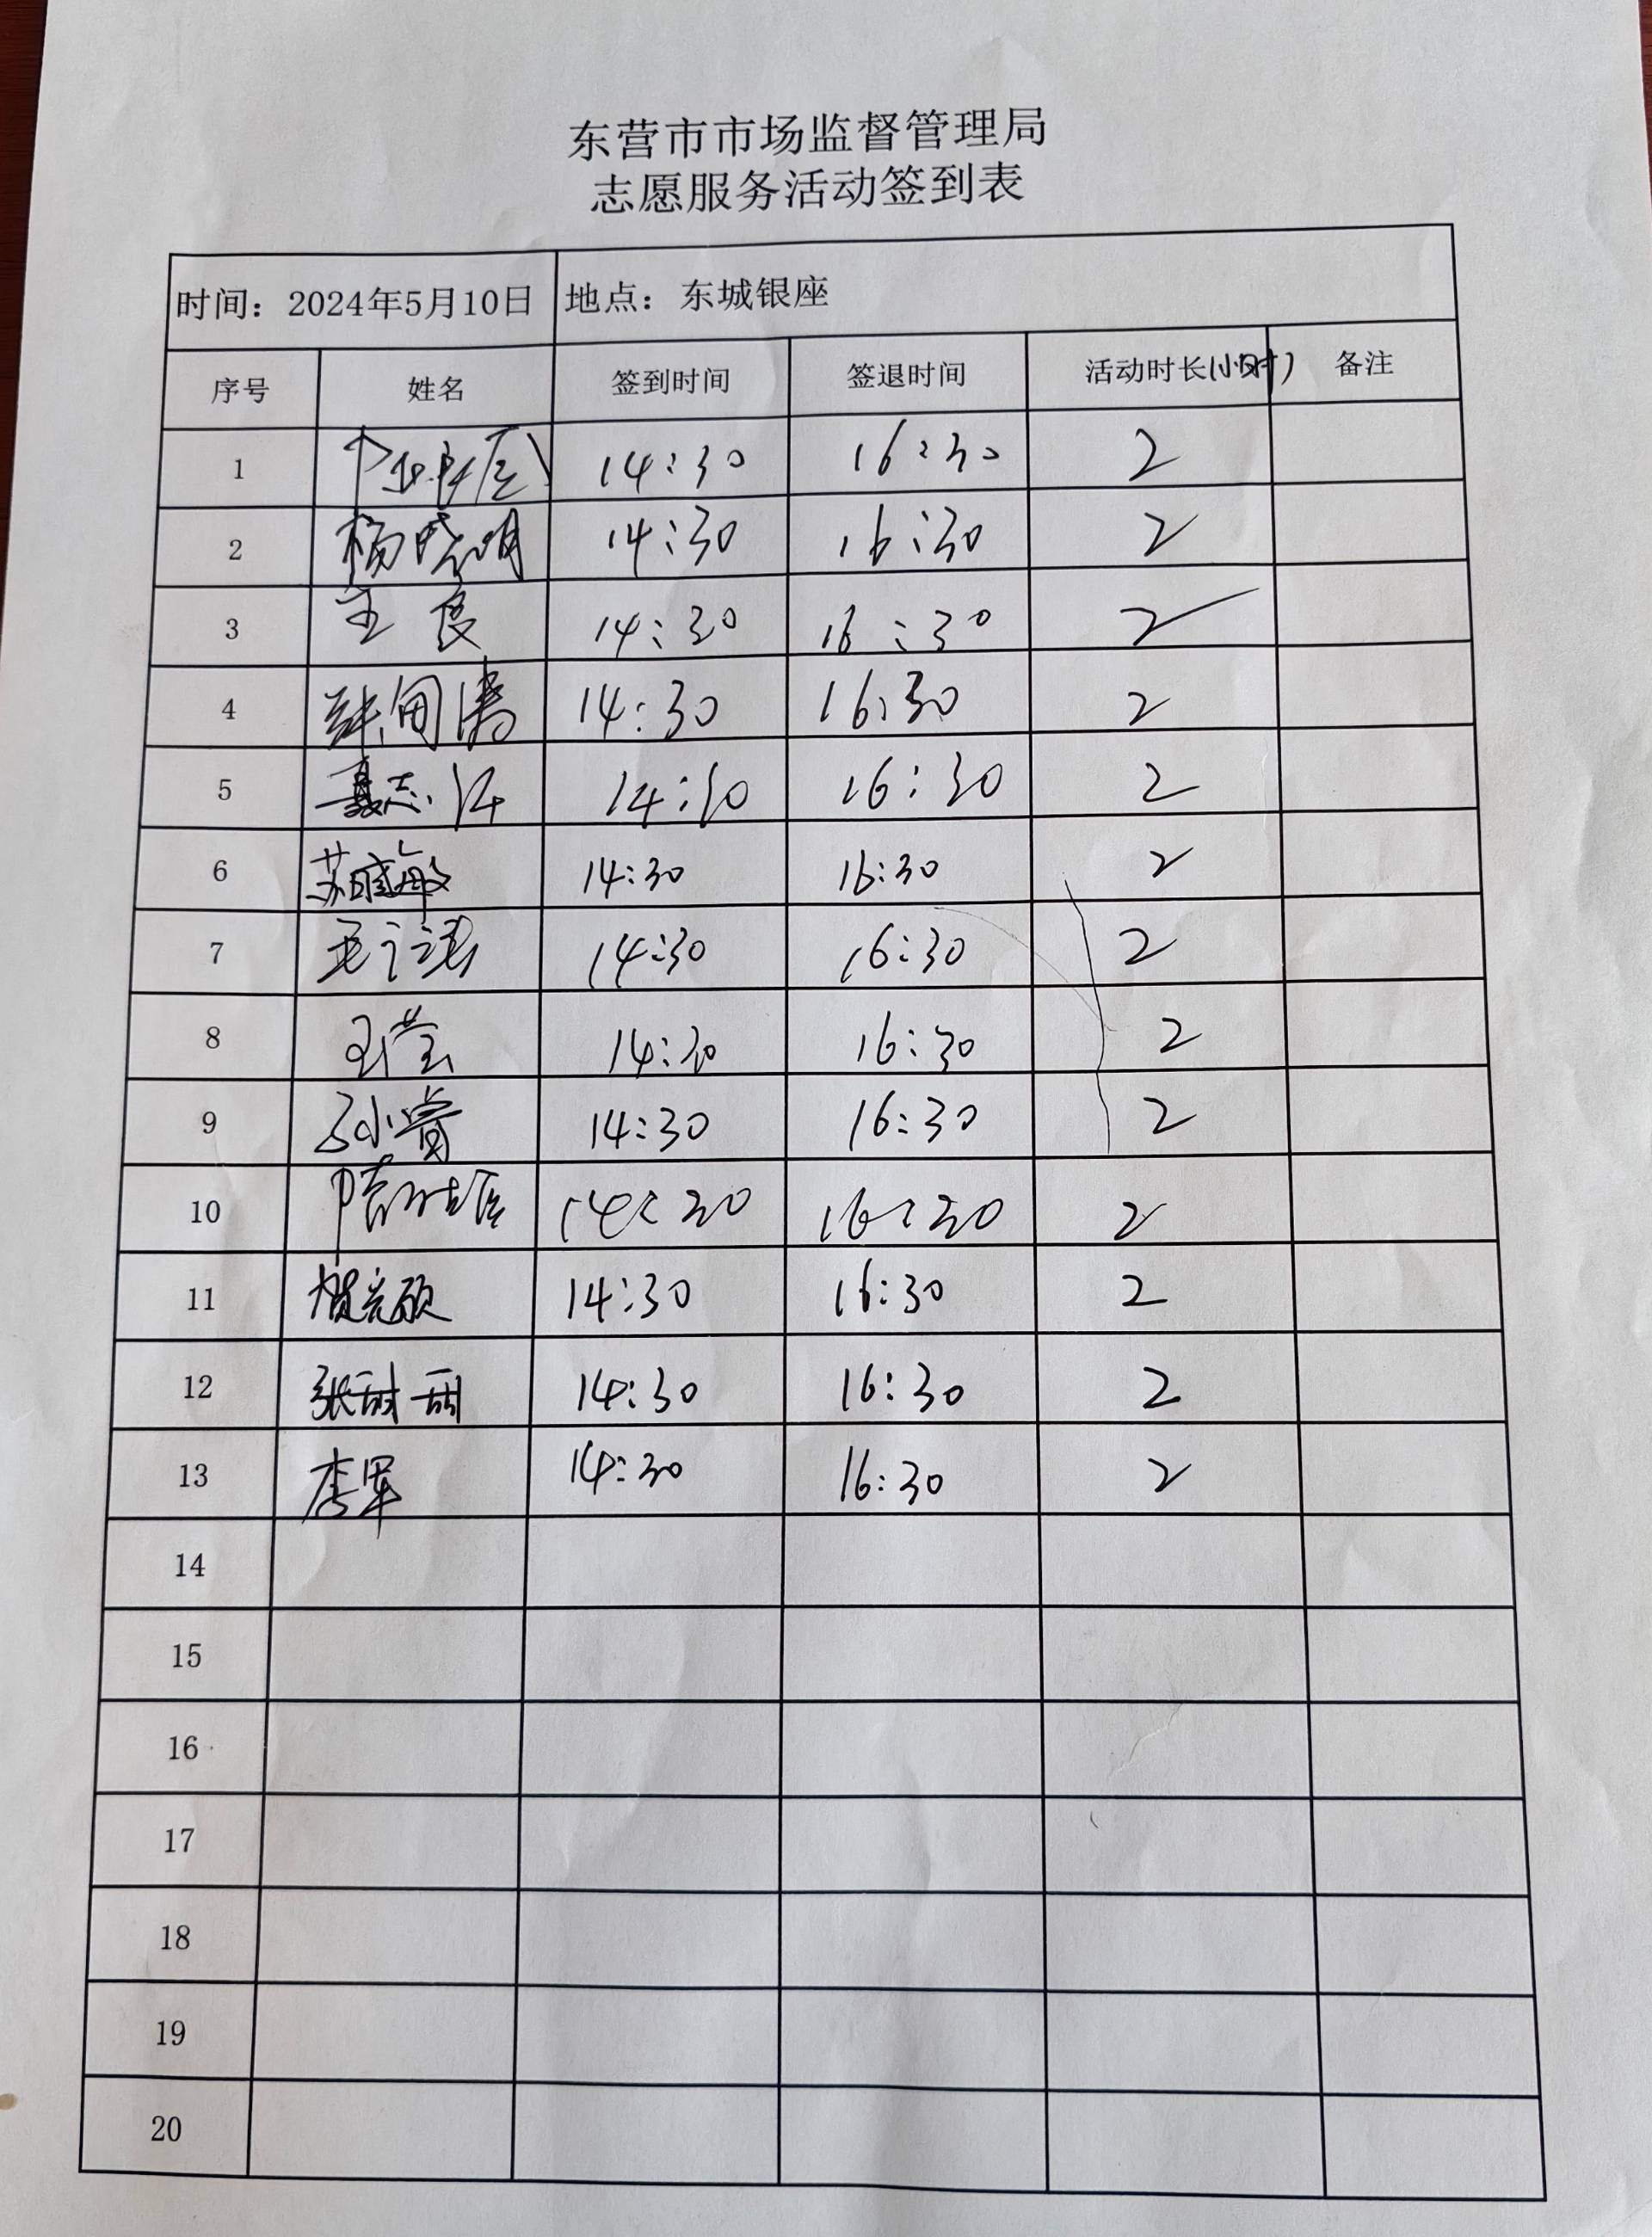 东营市市场监督管理局
志愿服务活动签到表
时间：2024年5月10日 地点：东城银座
序号 姓名 签到时间 签退时间 活动时长(小时) 备注
1 14:30 16:30 2
2 杨晓明 14:30 16:30 2
3 王良 14:30 16:30 2
4 14:30 16:30 2
5 聂志 14:30 16:30 2
6 苏晓敏 14:30 16:30 2
7 14:30 16:30 2
8 王莹 14:30 16:30 2
9 孙小 14:30 16:30 2
10 14:30 16:30 2
11 14:30 16:30 2
12 张甜甜 14:30 16:30 2
13 李军 14:30 16:30 2
14
15
16
17
18
19
20